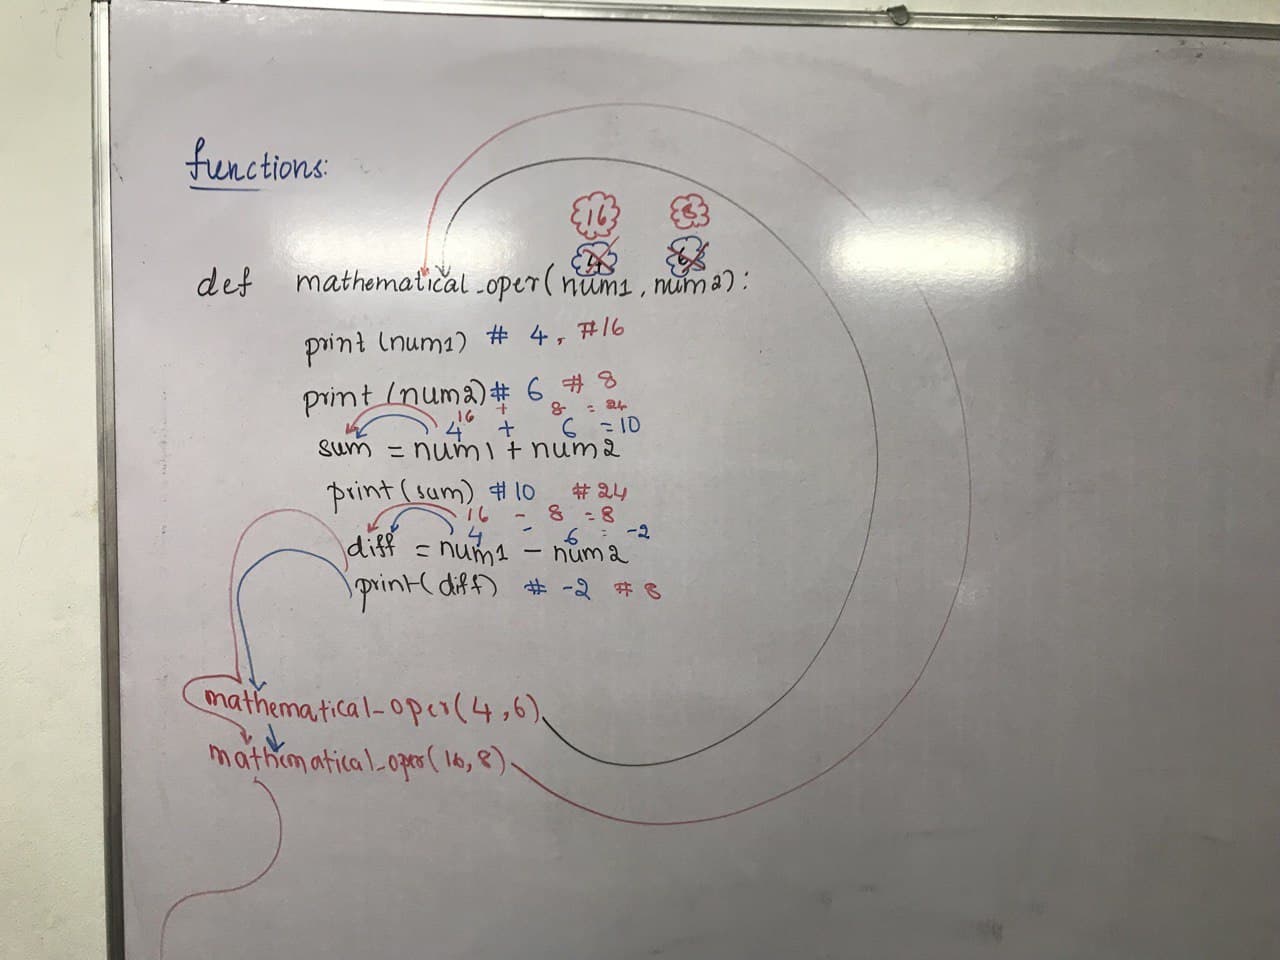 functions:
16 8
4 6
def mathematical_oper(num1, num2):
print (num1) # 4, #16
print (num2) # 6 # 8
16 + 8 = 24
4 + 6 = 10
sum = num1 + num2
print(sum) #10 #24
16 - 8 = 8
4 - 6 = -2
diff = num1 - num2
print(diff) # -2 # 8
mathematical_oper(4,6)
mathematical_oper(16,8)